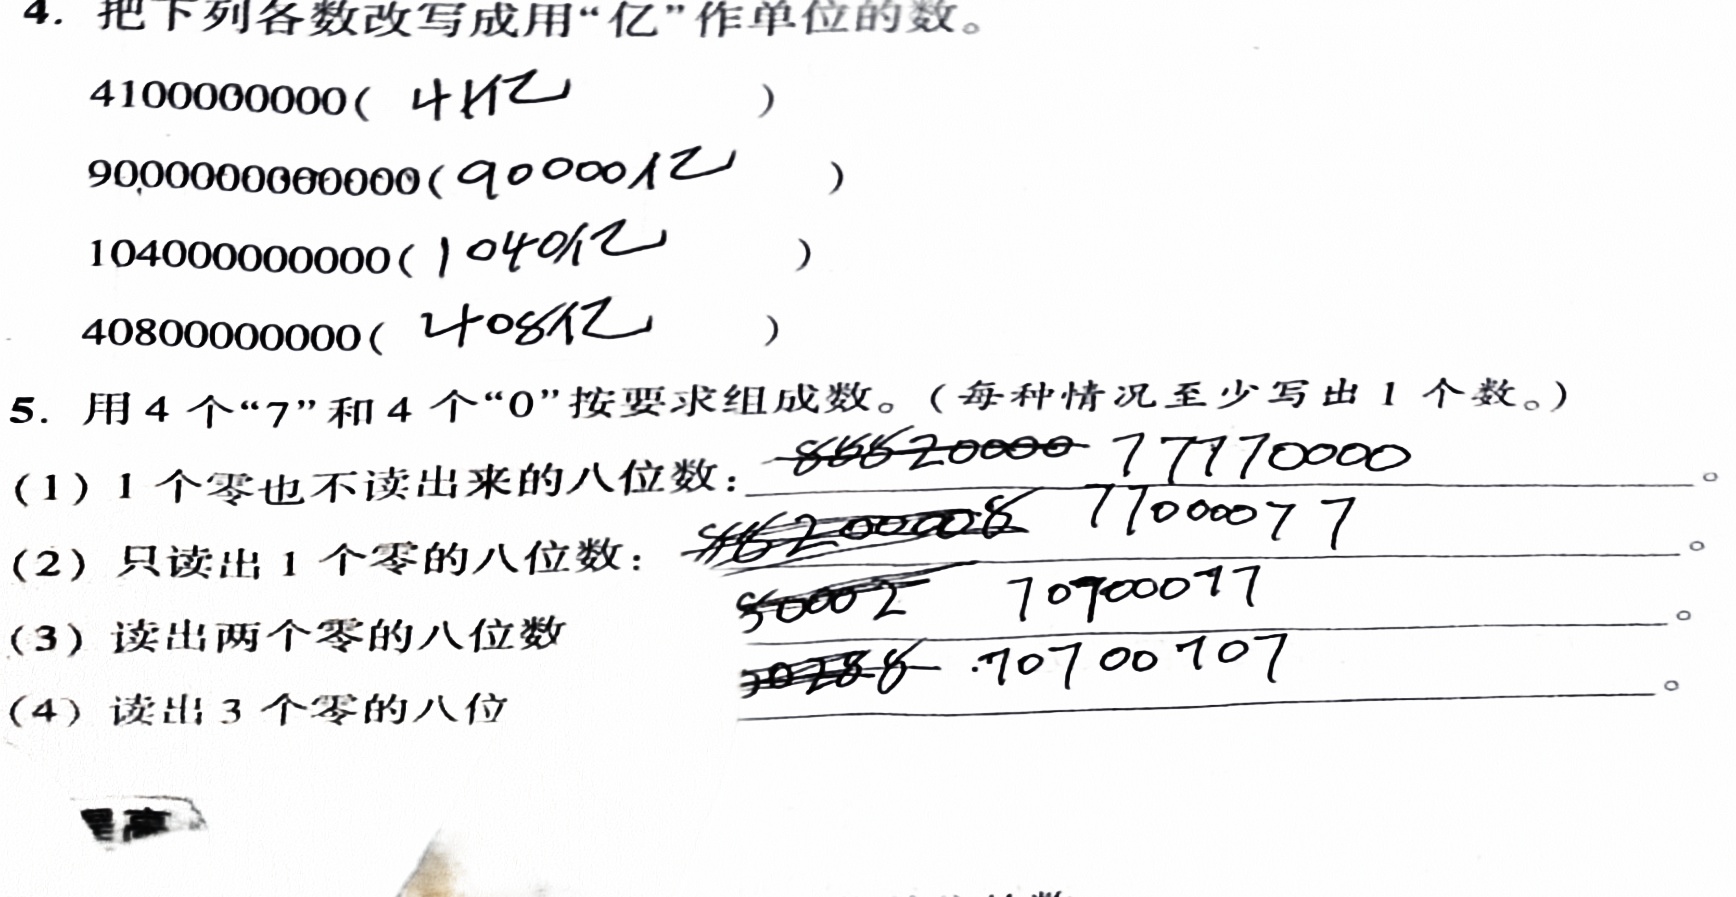 4. 把下列各数改写成用“亿”作单位的数。
4100000000( 41亿 )
9000000000000(90000亿 )
104000000000(1040亿 )
40800000000( 408亿 )
5. 用4个“7”和4个“0”按要求组成数。(每种情况至少写出1个数。)
(1) 1个零也不读出来的八位数: 77770000 。
(2) 只读出1个零的八位数: 77000077 。
(3) 读出两个零的八位数 70700077 。
(4) 读出3个零的八位 70700707 。